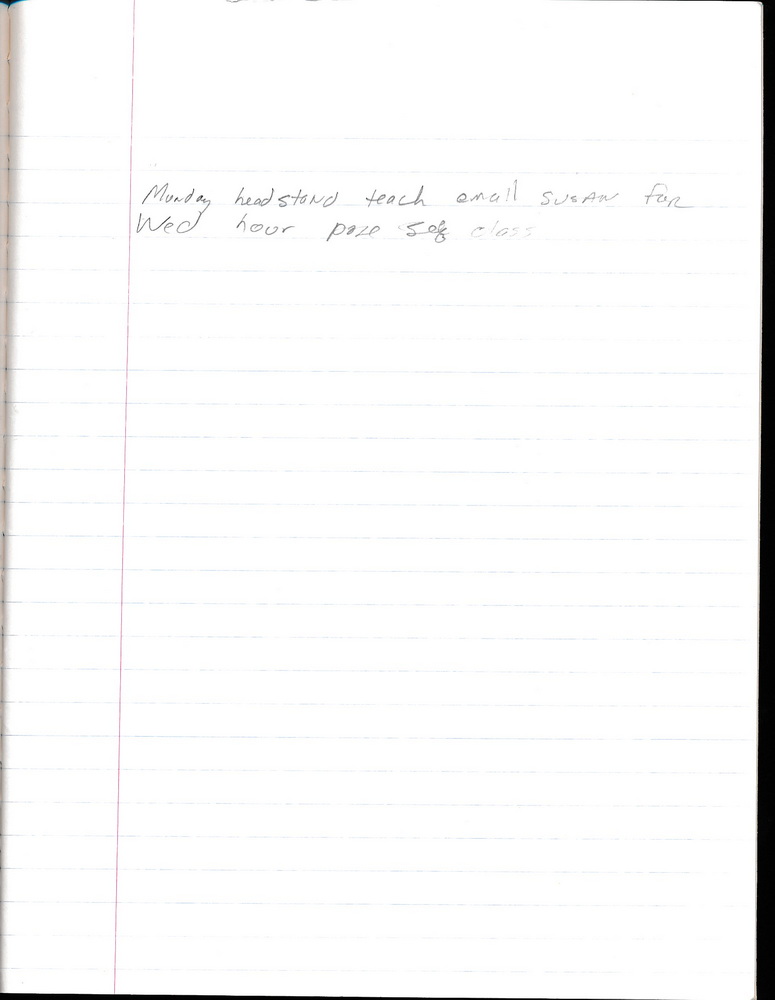 Monday headstand teach email SUSAN for
Wed hour class